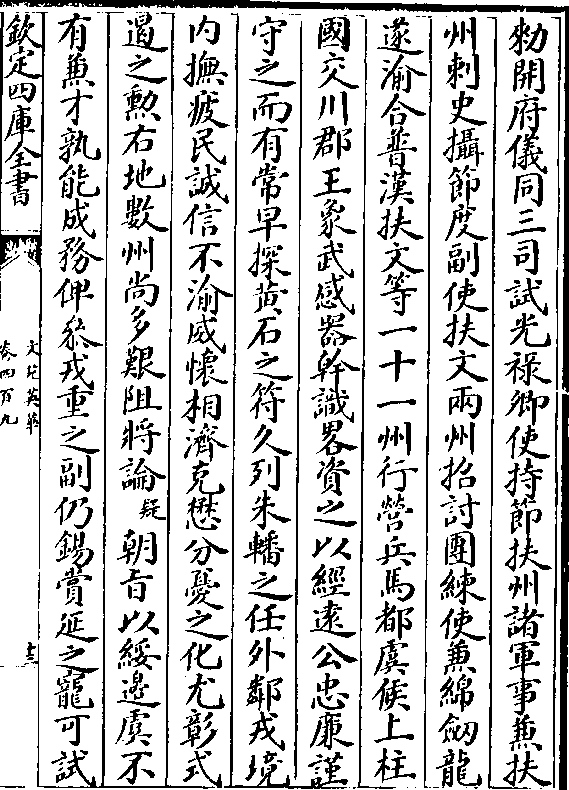 勑開府儀同三司試光祿卿使持節扶州諸軍事兼扶
州刺史攝節度副使扶文兩州招討團練使兼綿劒龍
遂渝合普漢扶文等一十一州行營兵馬都虞候上柱
國交川郡王象武感器幹識畧資之以經遠公忠廉謹
守之而有常早探黃石之符久列朱轓之任外鄰戎境
内撫疲民誠信不渝威懷相濟克懋分憂之化尤彰式
遏之勲右地數州尚多艱阻將論疑朝旨以綏邊虞不
有兼才孰能成務俾叅戎重之副仍錫賞延之寵可試
欽定四庫全書
文苑英華
卷四百九
十三